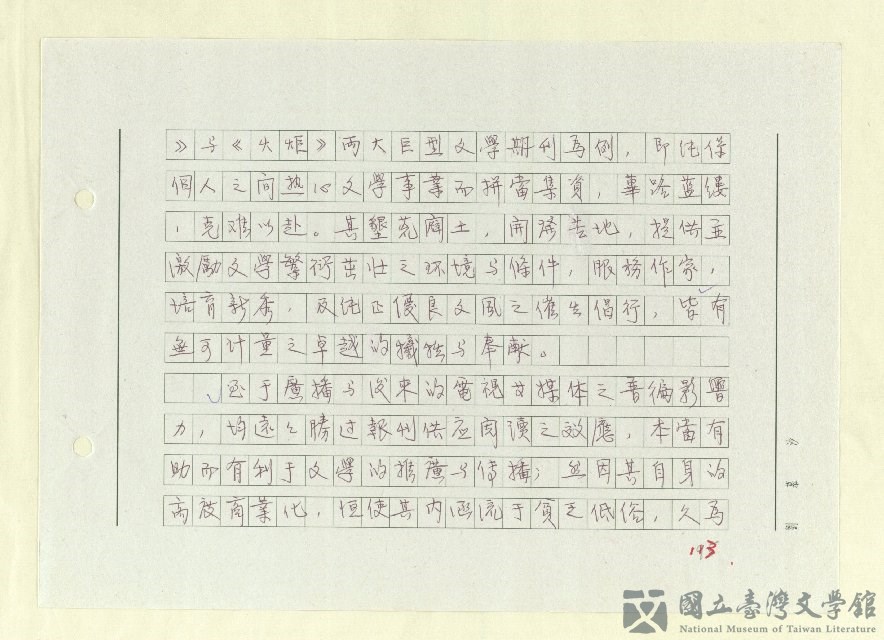 》与《火炬》兩大巨型文學期刊為例，即純係
個人之间热心文學事業而拼當集資，蓽路蓝缕
，克难以赴。其墾荒闢土，開疆告地，提供並
激勵文學繁衍茁壯之环境与條件，服務作家，
培育新秀，及純正優良文風之催生倡行，皆有
無可计量之卓越的犧牲与奉献。
至于廣播与後來的電視廿媒体之普徧影響
力，均遠々勝过報刊供应阅讀之效應，本當有
助而有利于文學的推廣与传播；然因其自身的
高被商業化，恒使其内涵流于貧乏低俗，久為
193
國立臺灣文学館
National Museum of Taiwan Literature